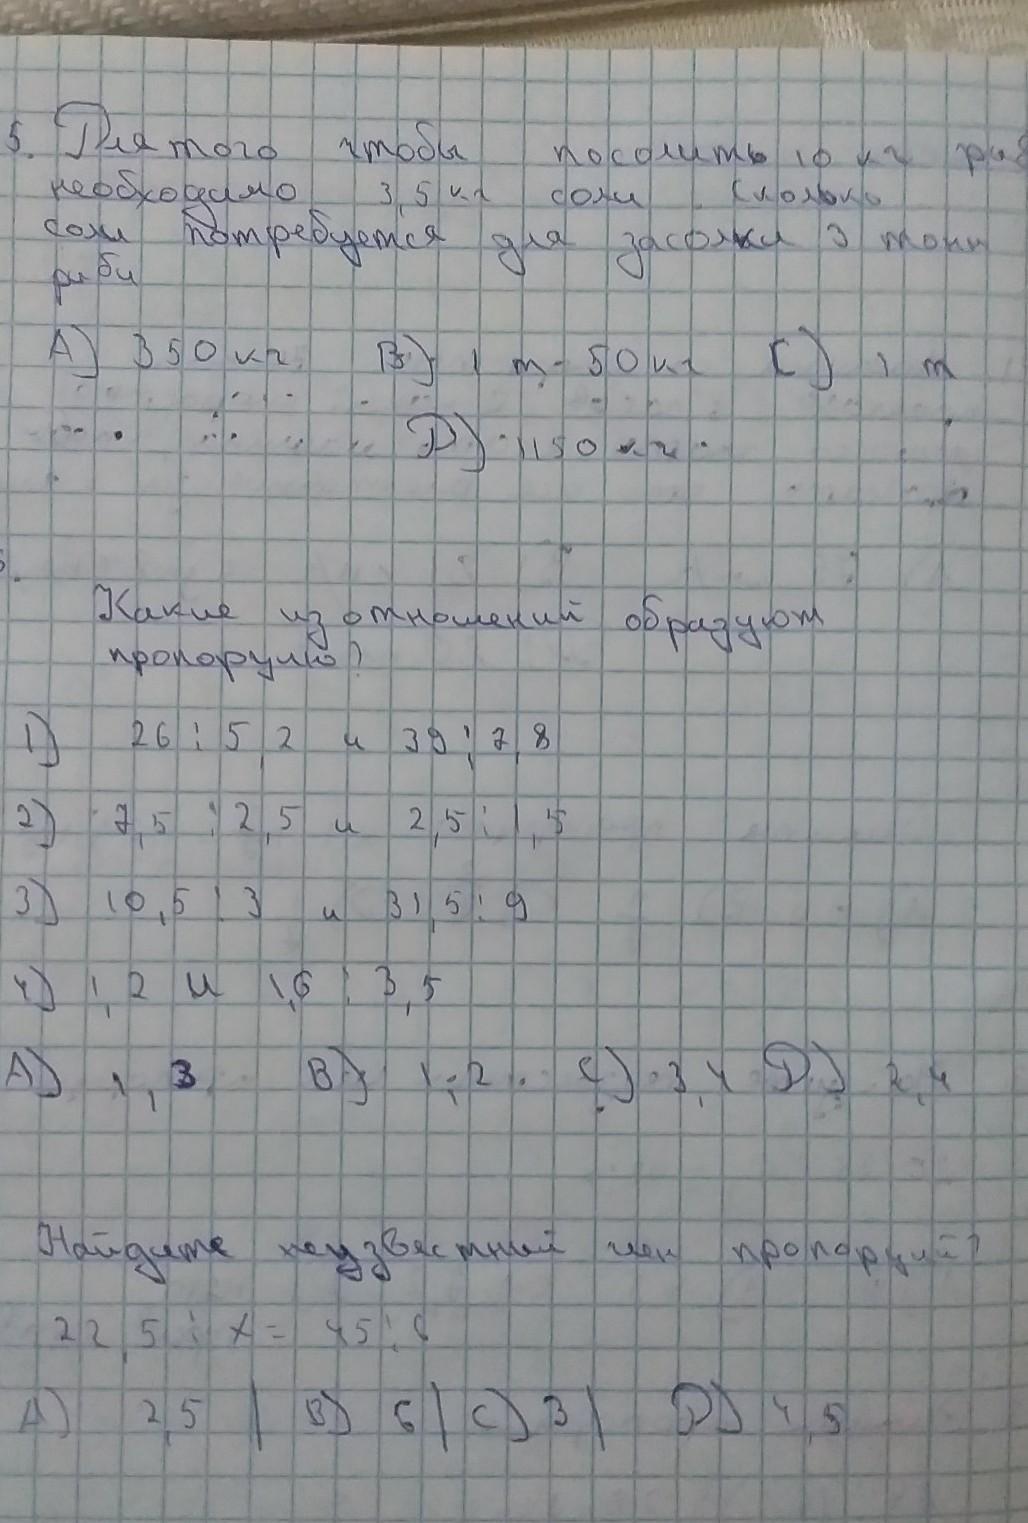 5. Для того чтобы посолить 10 кг
необходимо 3,5 кг соли. Сколько
соли потребуется для засолки 3 тонн
риби
A) 350 кг. B) 1 т 50 кг C) 1 т
D) 1150 кг
Какие из отношений образуют
пропорцию?
1) 26 : 5,2 и 39 : 7,8
2) 7,5 : 2,5 и 2,5 : 1,5
3) 10,5 : 3 и 31,5 : 9
4) 1,2 и 1,6 : 3,5
A) 1,3 B) 1,2. C) 3,4 D) 2,4
Найдите неизвестный член пропорций?
22,5 : x = 45 :
A) 2,5 | B) 6 | C) 3 | D) 4,5